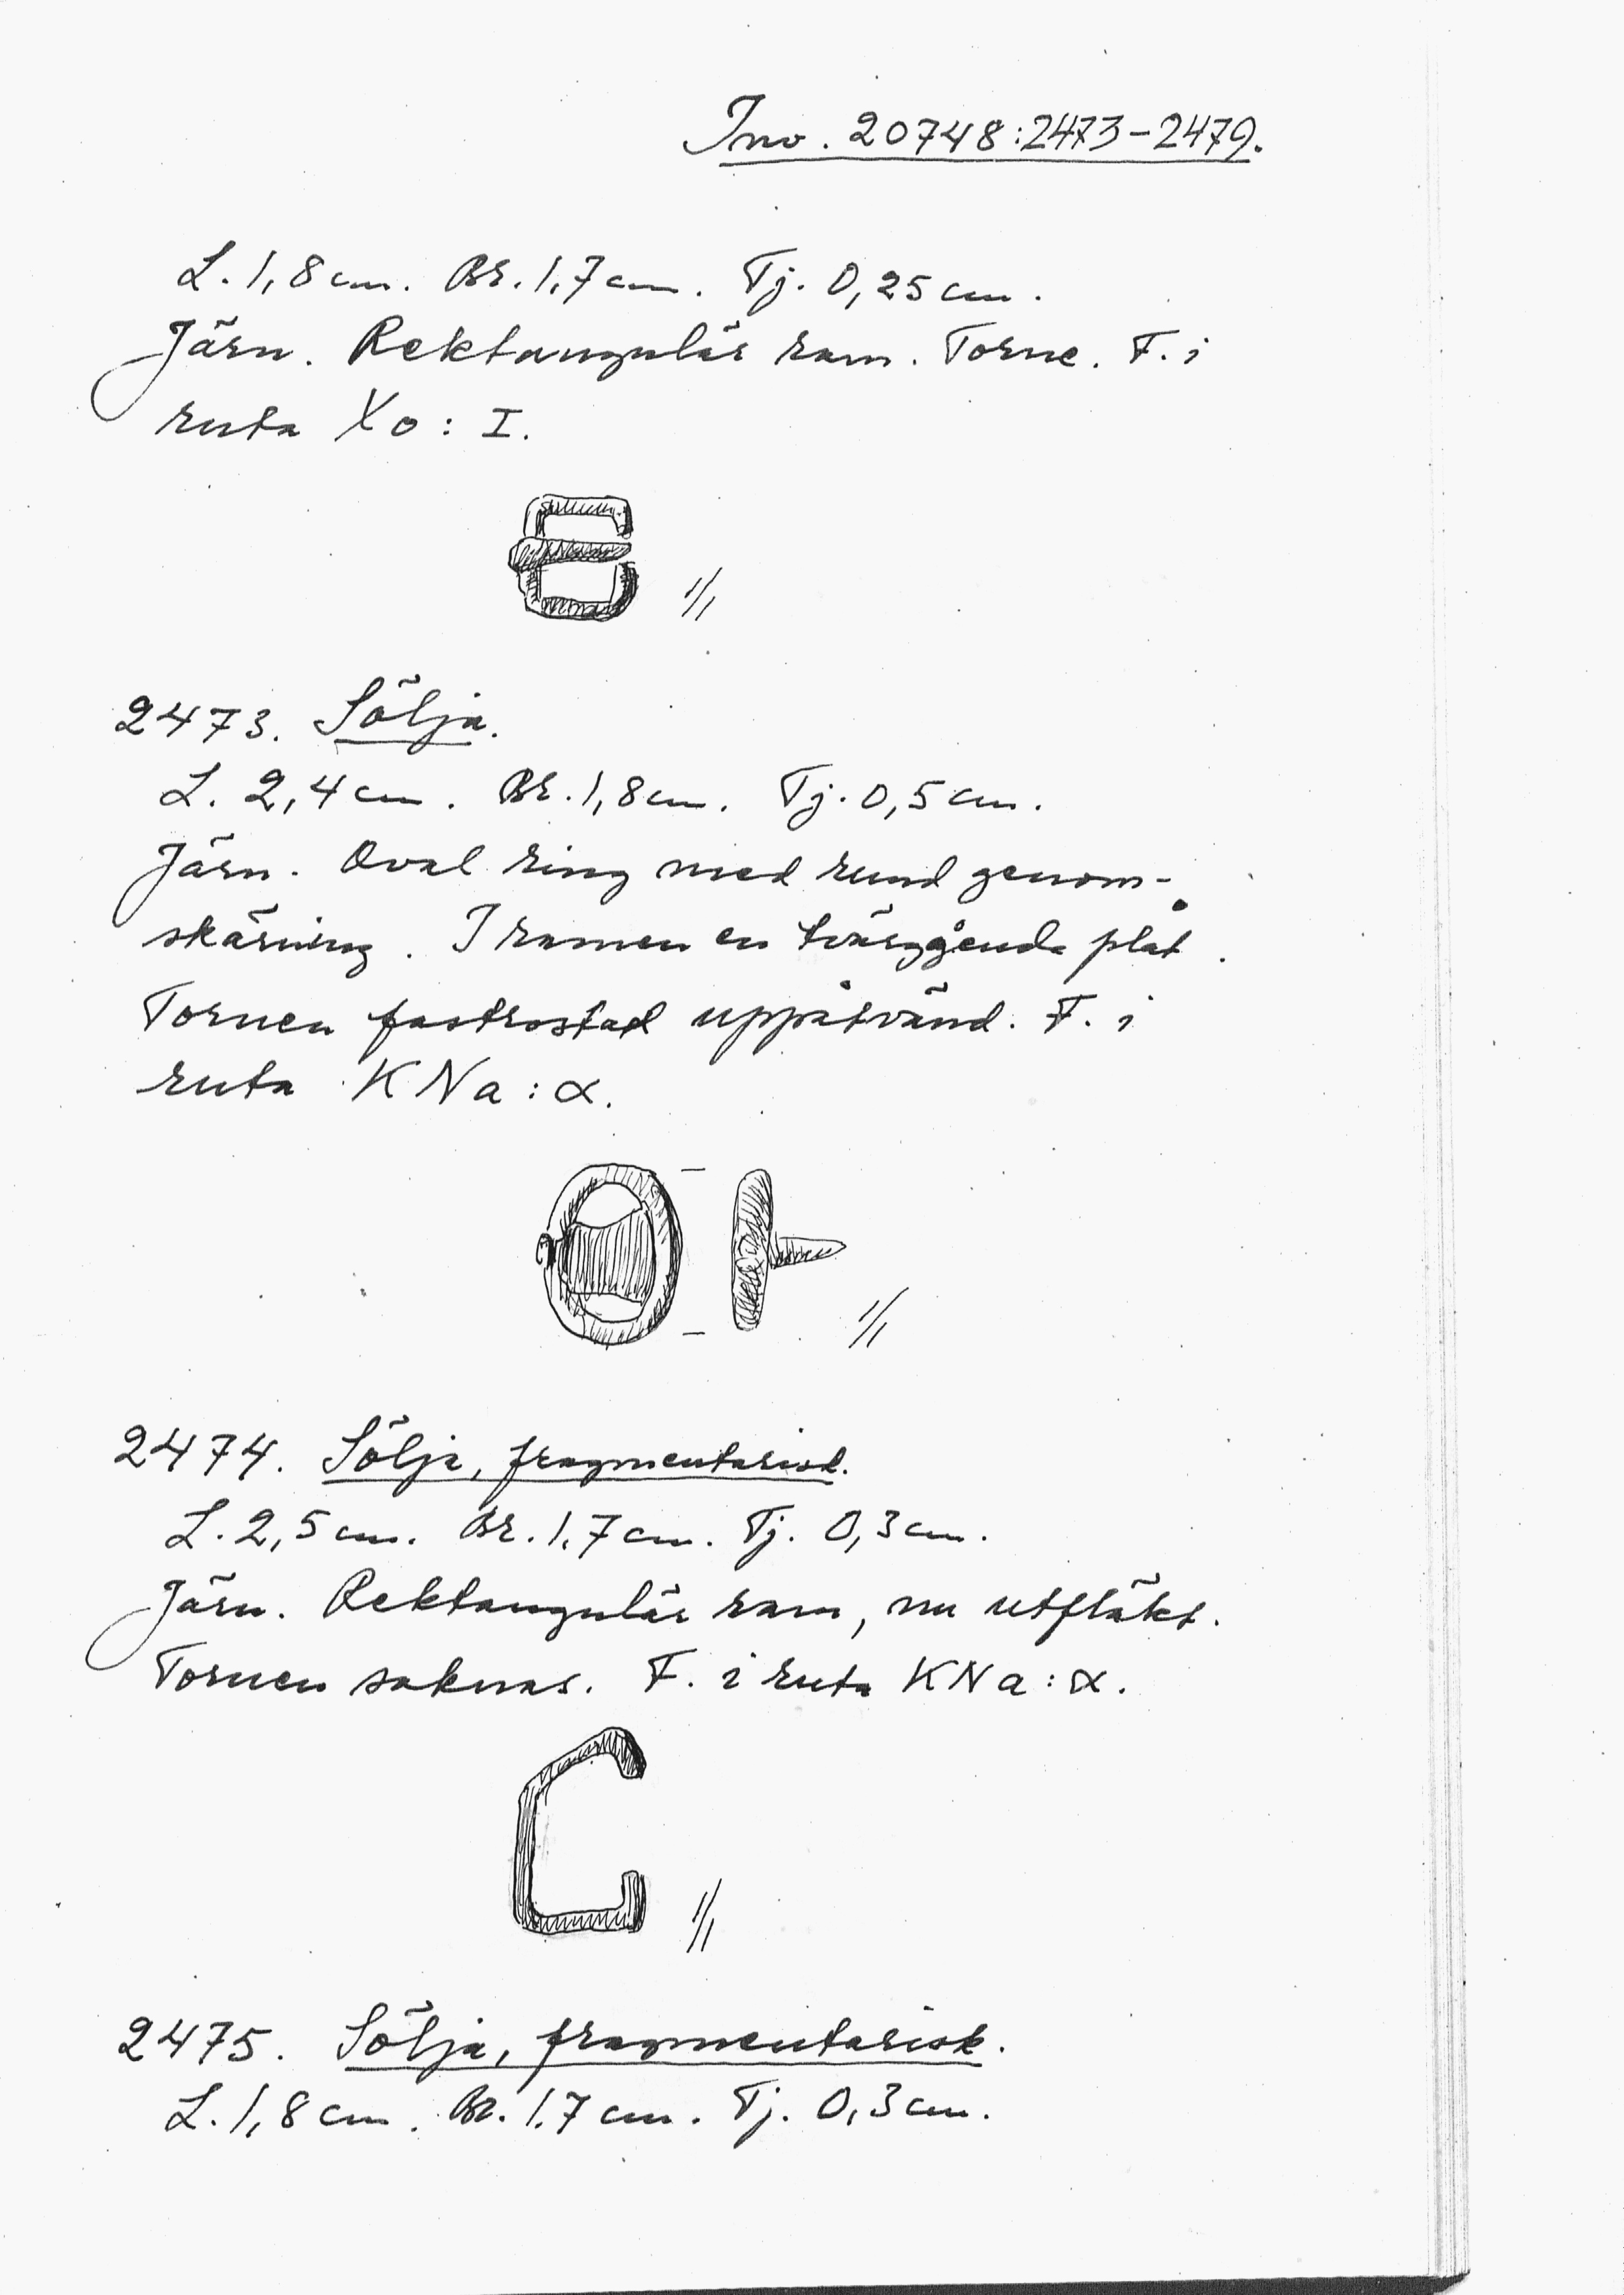 Inv. 20748:2473-2479.
L. 1,8 cm. Br. 1,7 cm. Tj. 0,25 cm.
Järn. Rektangulär ram. Torne. F. i
ruta Xo: I.
1/1
2473. Sölja.
L. 2,4 cm. Br. 1,8 cm. Tj. 0,5 cm.
Järn. Oval ring med rund genom-
skärning. I ramen en tvärgående plåt.
Tornen fastrostad uppåtvänd. F. i
ruta KNa: α.
1/1
2474. Sölja, fragmentarisk.
L. 2,5 cm. Br. 1,7 cm. Tj. 0,3 cm.
Järn. Rektangulär ram, nu utfläkt.
Tornen saknas. F. i ruta KNa: α.
1/1
2475. Sölja, fragmentarisk.
L. 1,8 cm. Br. 1,7 cm. Tj. 0,3 cm.